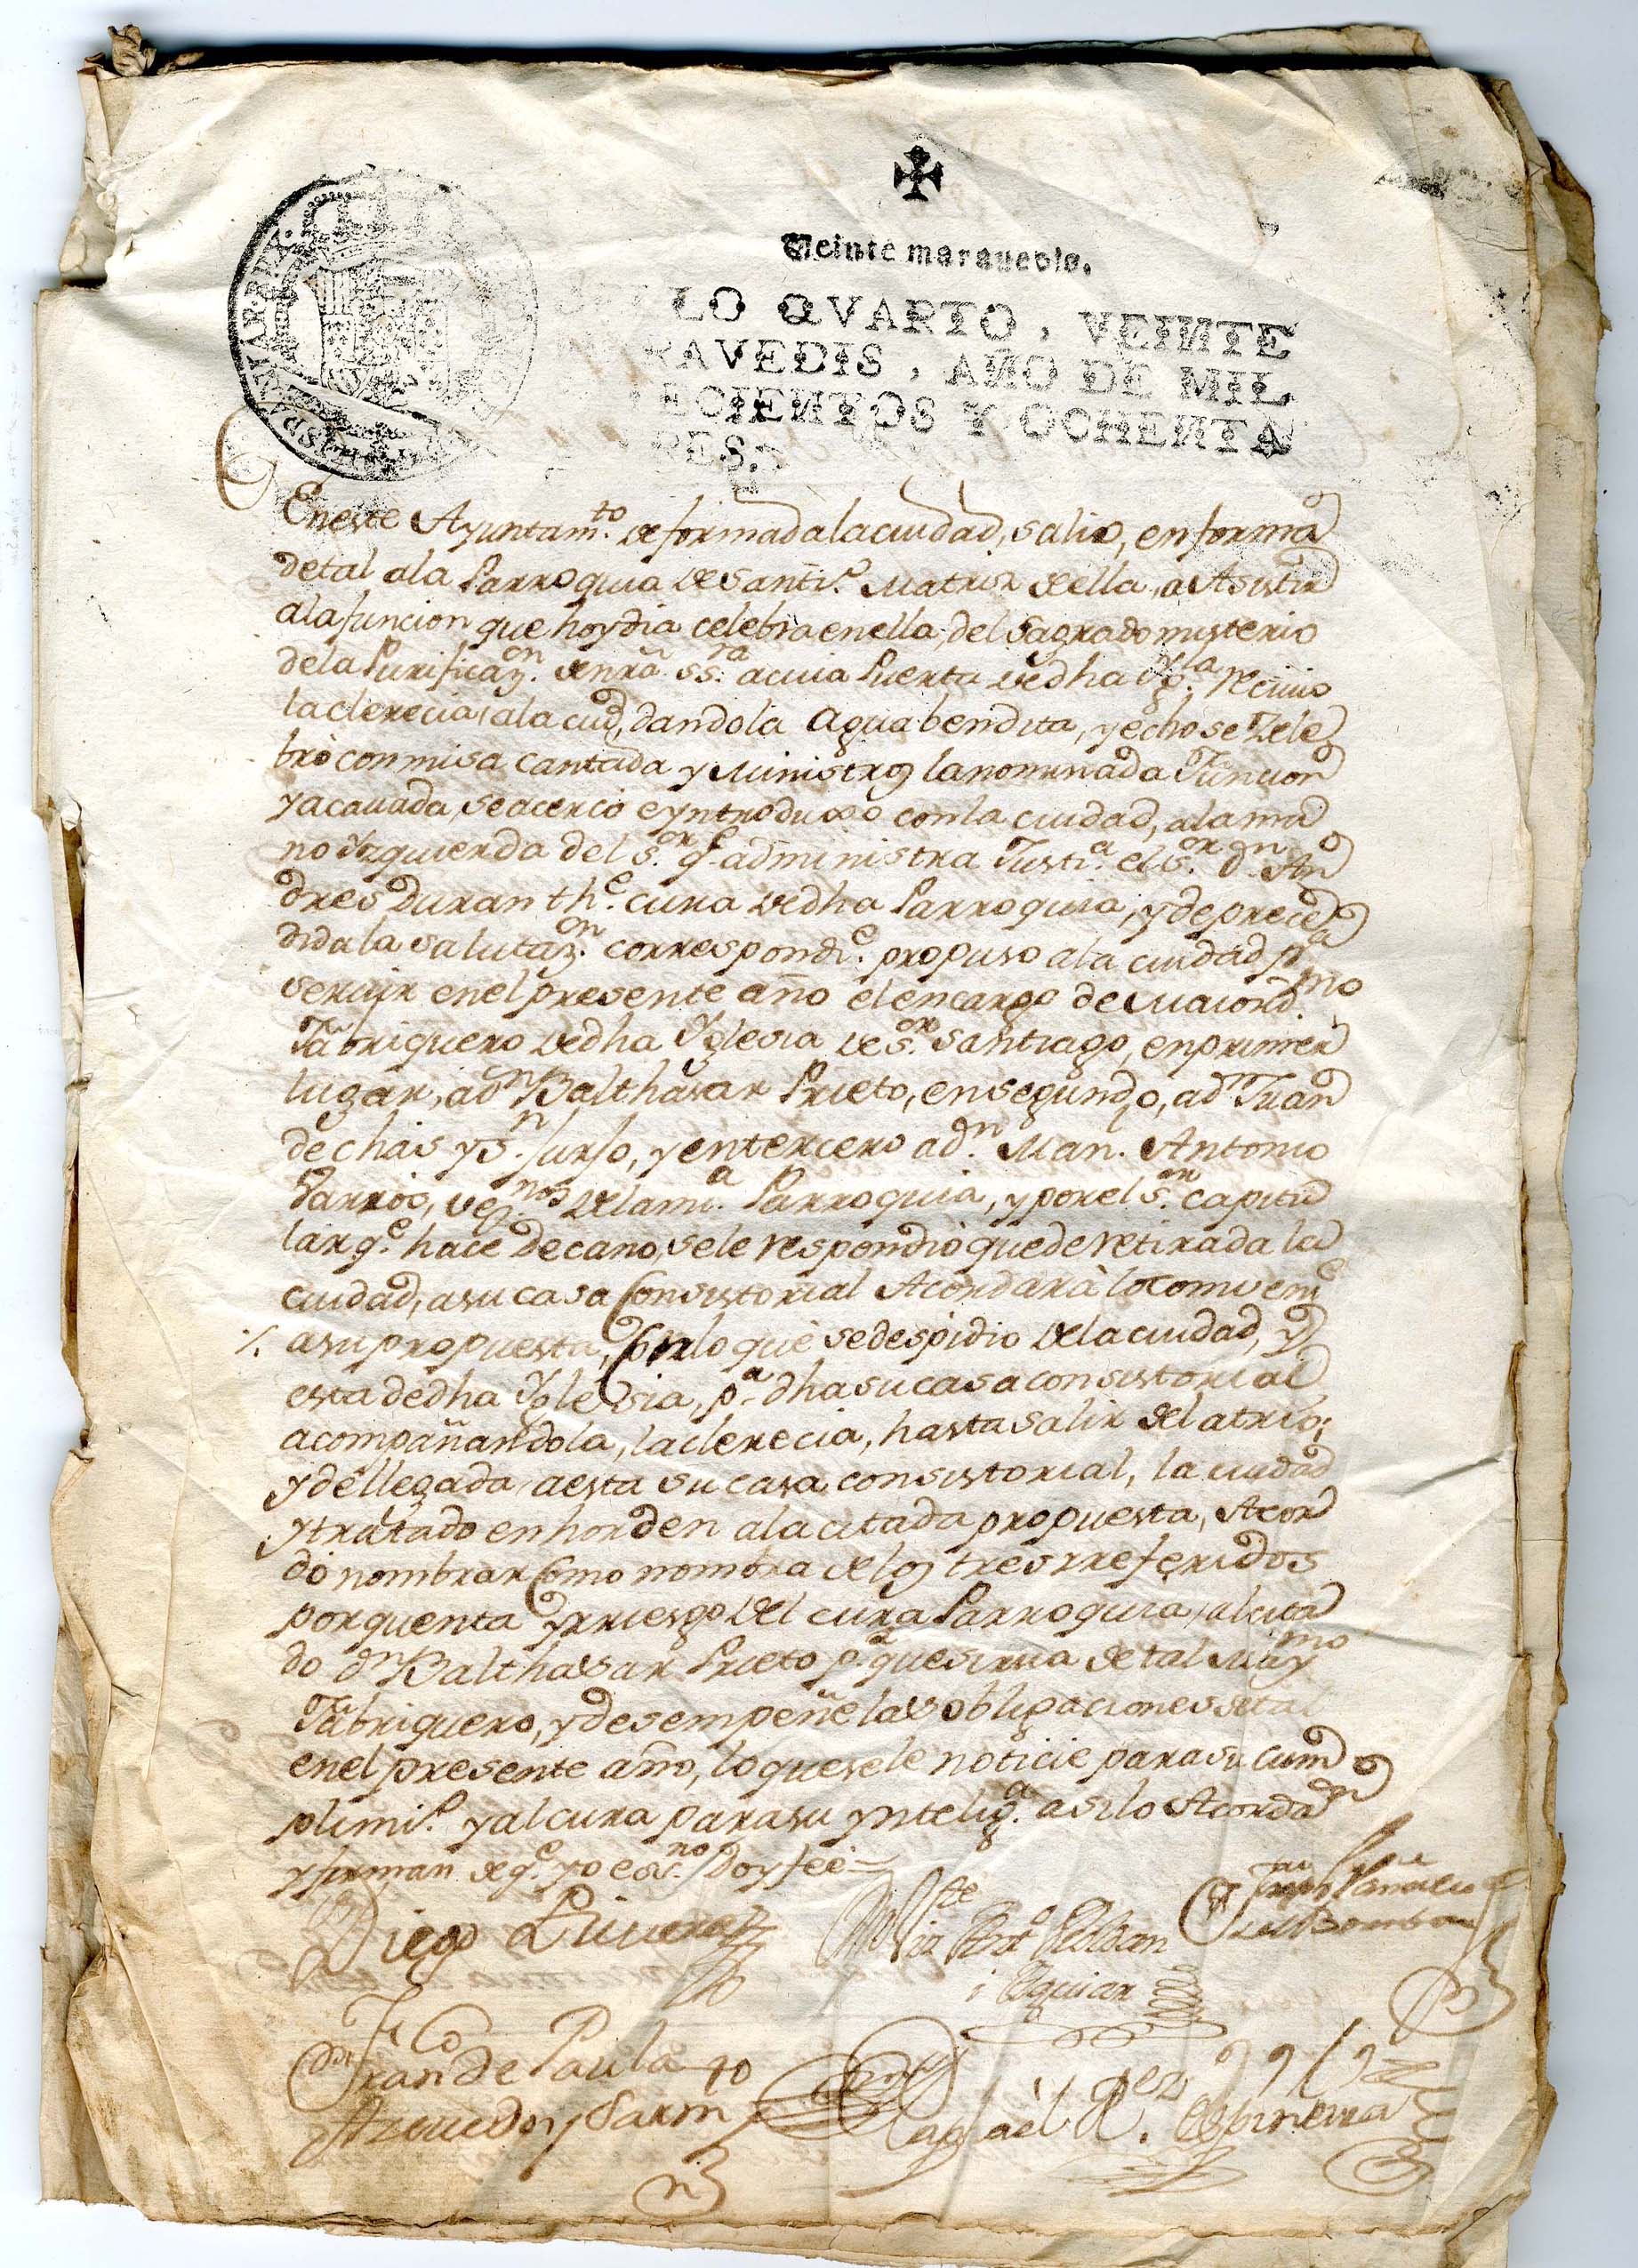 Veinte maravedis.
LO QVARTO, VEINTE
RAVEDIS, AÑO DE MIL
ECIENTOS Y OCHENTA
RES.
En este Ayuntam.to de formada la ciudad, salio, en forma
de tal a la Parroquia de Santi.o Matriz de ella, a Asistir
a la funcion que hoy dia celebra en ella, del Sagrado misterio
de la Purificaz.on de nrã SS.ra a cuia Puerta de dha Ygla. recivio
la clerecia, a la ciud, dandola Agua bendita, y echo se Zele
bró con misa cantada y Ministros la nominada Funcion
y acavada, se acercó e yntroduxo con la ciudad, a la ma
no Yzquierda del S.or q.e administra Justi.a el S.or d.n An
dres Duran th.e cura de dha Parroquia, y de prece
dida la salutaz.on correspondi.e propuso a la ciudad p.a
servir en el presente año el encargo de Maiord.mo
Fabriquero de dha Yglesia de S.or Santiago, en primer
lugar, a dn Balthasar Prieto, en segundo, a dn Juan
de chas y S.n Jurjo, y en tercero a d.n Man.l Antonio
Varrós, vez.nos de la mi.a Parroquia, y por el S.or capitu
lar q.e hace Decano, se le respondió que de retirada la
ciudad, a su casa Consistorial Acordará lo comveni.e
a su propuesta, con lo que se despidio de la ciudad, y
esta de dha Yglesia, p.a dha su casa consistorial
acompañandola, la clerecia, hasta salir del atrio;
y de llegada a esta su casa consistorial, la ciudad
y tratado en horden a la citada propuesta, Acor
dó nombrar como nombra de los tres rreferidos
por quenta y rriesgo del cura Parroquia, al cita
do dn Balthasar Prieto p.a que sirva de tal May.mo
Fabriquero, y desempeñe las obligaciones de tal
en el presente año, lo que se le noticie para su cum
plimi.o y al cura para su yntelig.a asi lo Acorda.on
y firman de q.e yo es.no Doy feé=
Diego Rivera
i Aguiar
Fran.co de Paula
Azevedo y
Rafael R.guez Espineira